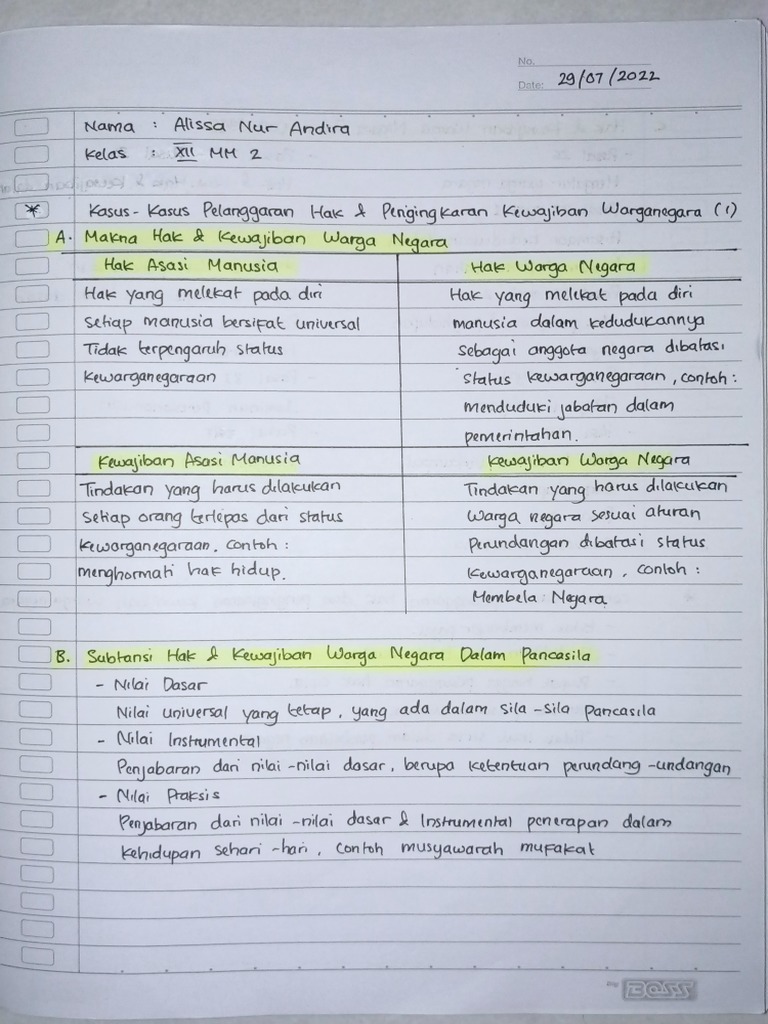 No.
Date: 29/07/2022
Nama : Alissa Nur Andira
Kelas : XII MM 2
* Kasus-Kasus Pelanggaran Hak & Pengingkaran Kewajiban Warganegara (1)
A. Makna Hak & Kewajiban Warga Negara
Hak Asasi Manusia
Hak yang melekat pada diri
setiap manusia bersifat universal
Tidak terpengaruh status
Kewarganegaraan
Hak Warga Negara
Hak yang melekat pada diri
manusia dalam kedudukannya
sebagai anggota negara dibatasi
status kewarganegaraan, contoh :
menduduki jabatan dalam
pemerintahan.
Kewajiban Asasi Manusia
Tindakan yang harus dilakukan
setiap orang terlepas dari status
kewarganegaraan. contoh :
menghormati hak hidup.
Kewajiban Warga Negara
Tindakan yang harus dilakukan
warga negara sesuai aturan
Perundangan dibatasi status
Kewarganegaraan, contoh :
Membela Negara.
B. Subtansi Hak & Kewajiban Warga Negara Dalam Pancasila
- Nilai Dasar
Nilai universal yang tetap, yang ada dalam sila-sila pancasila
- Nilai Instrumental
Penjabaran dari nilai-nilai dasar, berupa ketentuan perundang-undangan
- Nilai Praksis
Penjabaran dari nilai-nilai dasar & Instrumental penerapan dalam
kehidupan sehari-hari, contoh musyawarah mufakat
BOSS